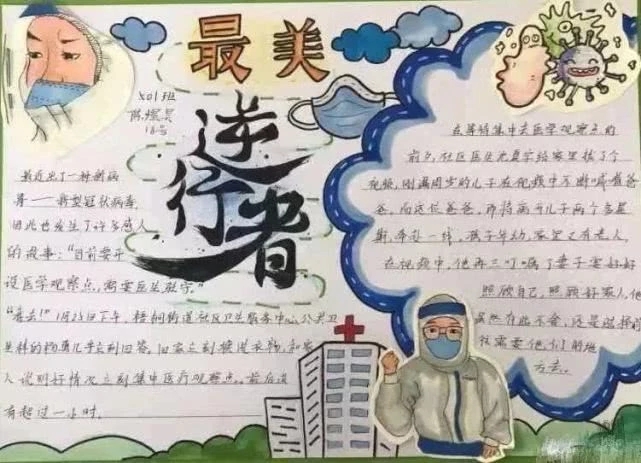 最美
逆行者
801班
18号
最近出了一种新病
毒——新型冠状病毒,
因此也发生了许多感人
的故事:“目前要开
设医学观察点,需要医生驻守。”
“我去!”1月23日下午,梧桐街道社区卫生服务中心公共卫
生科的杨勇几乎立刻回答,回家立刻
人说明好情况立刻集中医疗观察点。前后没
有超过一小时。
在等待集中去医学观察点的
前夕,社区医生尤嘉宇给家里拨了个
视频,刚满周岁的儿子在视频中不断喊着爸
爸,而这位爸爸,即将离开儿子两个多星
期。奔赴一线,孩子年幼,家里又有老人,
在视频中,他再三叮嘱了妻子要好好
照顾自己,照顾好家人,他
虽然有些不舍,还是选择前
往需要他们的地
方去。